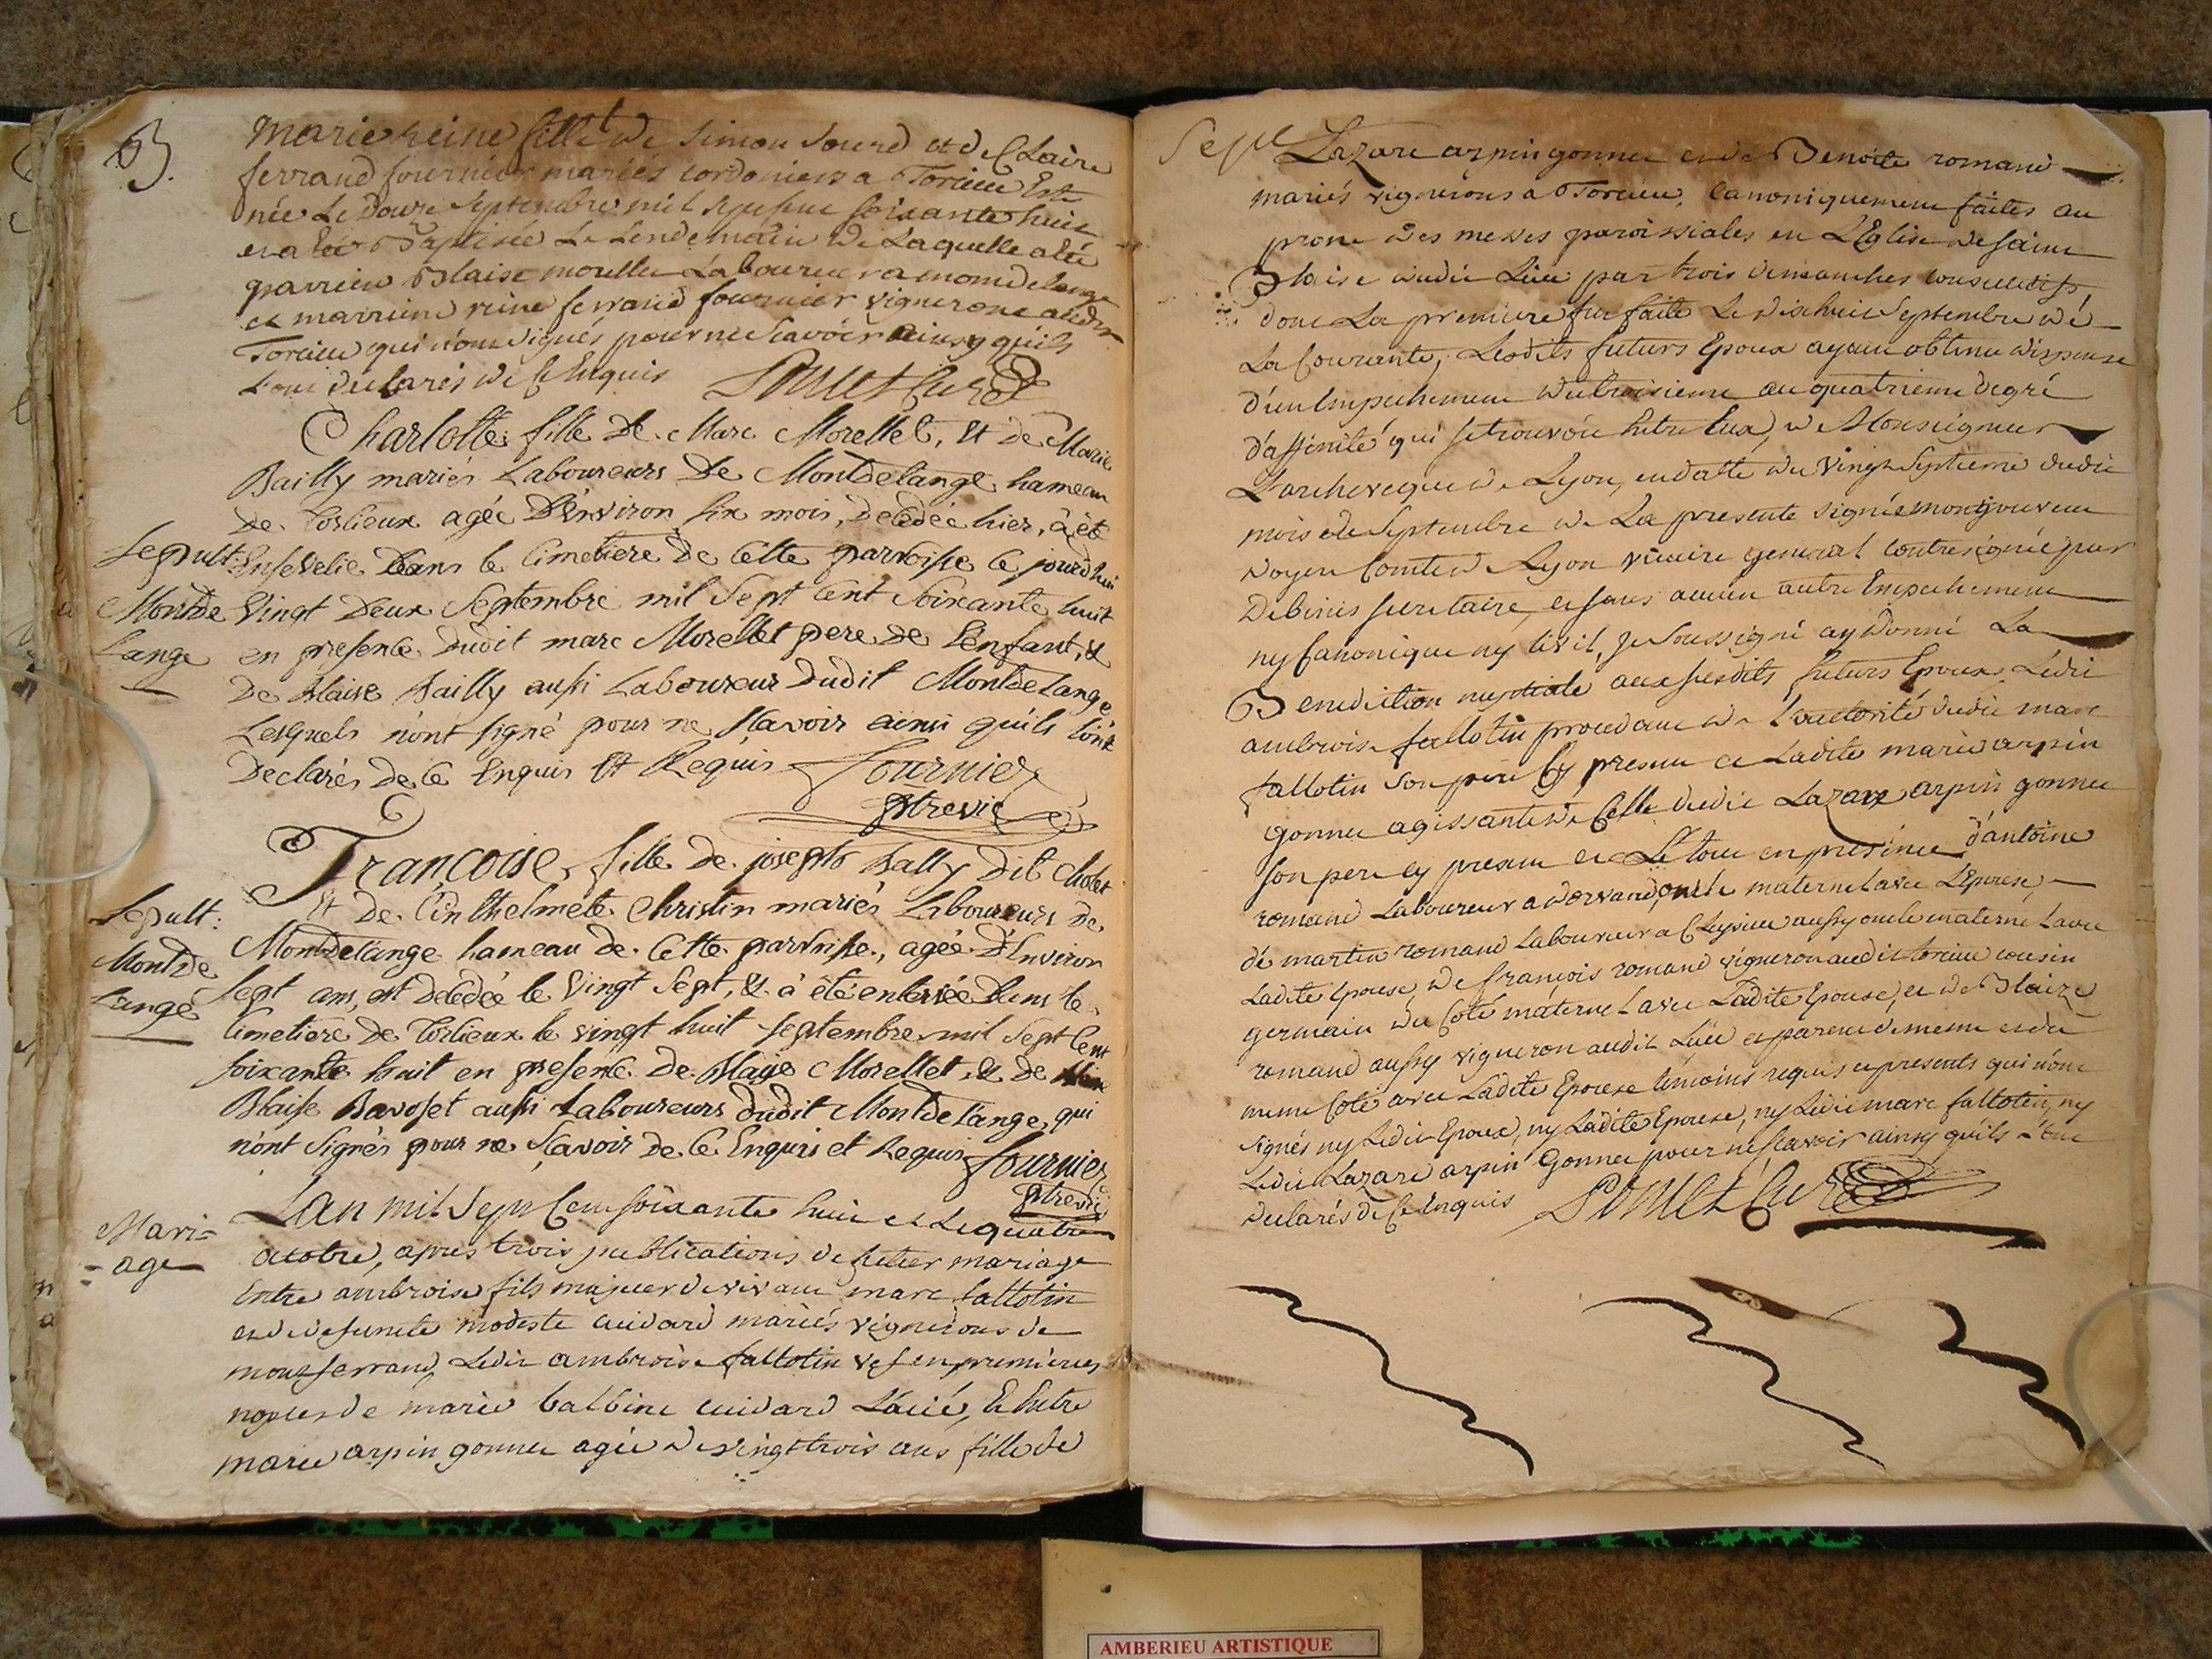 B.
Marie reine fille de Simon Sourd et de Claire
ferrand fournier mariés cordoniers a Torcieu Est
née Le Douze Septembre mil sept cent soixante huit
et a été Baptisée Le Lendemain de Laquelle a été
parrein Blaise morellet Laboureur a montdelange
et marreine reine ferrand fournier vignerone audit
Torcieu qui n'ont signés pour ne Scavoir ainsy quils
L'ont declarés de Ce Enquis Curé
Charlotte fille De Marc Morellet, Et de Marie
Bailly mariés Laboureurs De Montdelange hameau
De Torcieux agée D'environ six mois, decedée hier, à èté
Sepult: Ensevelie Dans le Cimetiere De Cette parroisse Ce jourd'hui
Montde Vingt Deux Septembre mil Sept Cent Soixante huit
Lange en presence Dudit marc Morellet pere De L'enfant, &
De Blaise Bailly aussi Laboureur Dudit Montdelange
Lesquels n'ont signé pour ne Scavoir ainsi quils l'ont
Declarés De Ce Enquis Et Requis Fournier
Françoise, fille De joseph Bally Dit Cholet
Sepult: Et De Christin mariés Laboureurs De
Montde Montdelange hameau De Cette parroisse, agée D'Environ
Lange Sept ans, est Decedée le Vingt Sept, & à été enterrée Dans le
Cimetiere De Torcieux le vingt huit septembre mil Sept Cent
soixante huit en presence De Blaise Morellet, & De
Blaise Bavoset aussi Laboureurs Dudit Montdelange, qui
n'ont Signés pour ne Scavoir De Ce Enquis et Requis Fournier
Mari= L'an mil Sept Cent soixante huit et Le quatre
-age octobre, apres trois publications de futur mariage
Entre ambroise fils majeur de vivant marc fallotin
et de defuncte modeste cuidard mariés vignerons de
montferrand, Ledit ambroise fallotin vef en premieres
nopces de marie balbine cuidard L'aié, Et Entre
marie arpin gonnet agée de vingt trois ans fille de
Lazare arpin gonnet et de Benoite romand
mariés vignerons a Torcieu, Canoniquement faites au
prone des messes paroissiales en L'Eglise de saint
Blaise dudit Lieu par trois dimanches consecutifs,
dont La premiere fut faite Le dix huit Septembre de
La Courante, Lesdits futurs Epoux ayant obtenu dispense
d'un Empechement du troisieme au quatrieme degré
d'affinité qui se trouvoit Entre Eux, de Monseigneur
L'archeveque de Lyon, en datte du Vingt Septieme dudit
mois de Septembre de La presente signé montjouvent
doyen Comte de Lyon vicaire general contresigné par
secretaire, et sans aucun autre Empechement
ny Canonique ny Civil, Je Soussigné ay Donné La
Benediction nuptiale aux susdits futurs Epoux, Ledit
ambroise fallotin procedant de L'auctorité dudit marc
fallotin son pere Cy present et Ladite marie arpin
gonnet agissante de Celle dudit Lazare arpin gonnet
son pere cy present et Le tout en presence d'antoine
romand Laboureur a dorvand, oncle maternel avec L'Epouse,
de martin romand Laboureur a Cleyzieu aussy oncle maternel avec
Ladite Epouse, de françois romand vigneron audit torcieu cousin
germain du Coté maternel avec Ladite Epouse, et de Blaize
romand aussy vigneron audit Lieu et parent de meme et du
meme Coté avec Ladite Epouse temoins requis et presents qui n'ont
signés ny Ledit Epoux, ny Ladite Epouse, ny Ledit marc fallotin, ny
Ledit Lazare arpin Gonnet pour ne scavoir ainsy quils L'ont
declarés de Ce Enquis Curé
AMBERIEU ARTISTIQUE